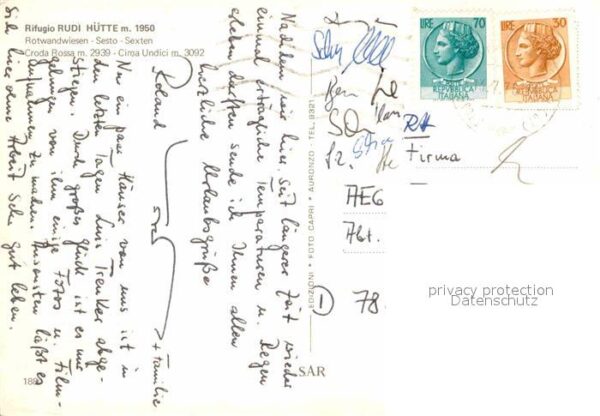 Rifugio RUDI HÜTTE m. 1950
Rotwandwiesen - Sesto - Sexten
Croda Rossa m. 2939 - Ciroa Undici m. 3092
Nachdem wir hier seit längerer Zeit wieder
einmal erträgliche Temperaturen u. Regen
erleben durften sende ich Ihnen allen
herzliche Urlaubsgrüße
Roland
+ Familie
Nur ein paar Häuser von uns ist in
den letzten Tagen Luis Trenker abge-
stiegen. Durch großes Glück ist es mir
gelungen von ihm einige Fotos u. Film-
aufnahmen zu machen. Ansonsten läßt es
sich hier ohne Arbeit sehr gut leben.
188
EDIZIONI FOTO CAPRI AURONZO TEL.
SAR
LIRE 70
REPVBBLICA
ITALIANA
LIRE 30
REPVBBLICA
ITALIANA
Firma
AEG
Abt.
78
privacy protection
Datenschutz